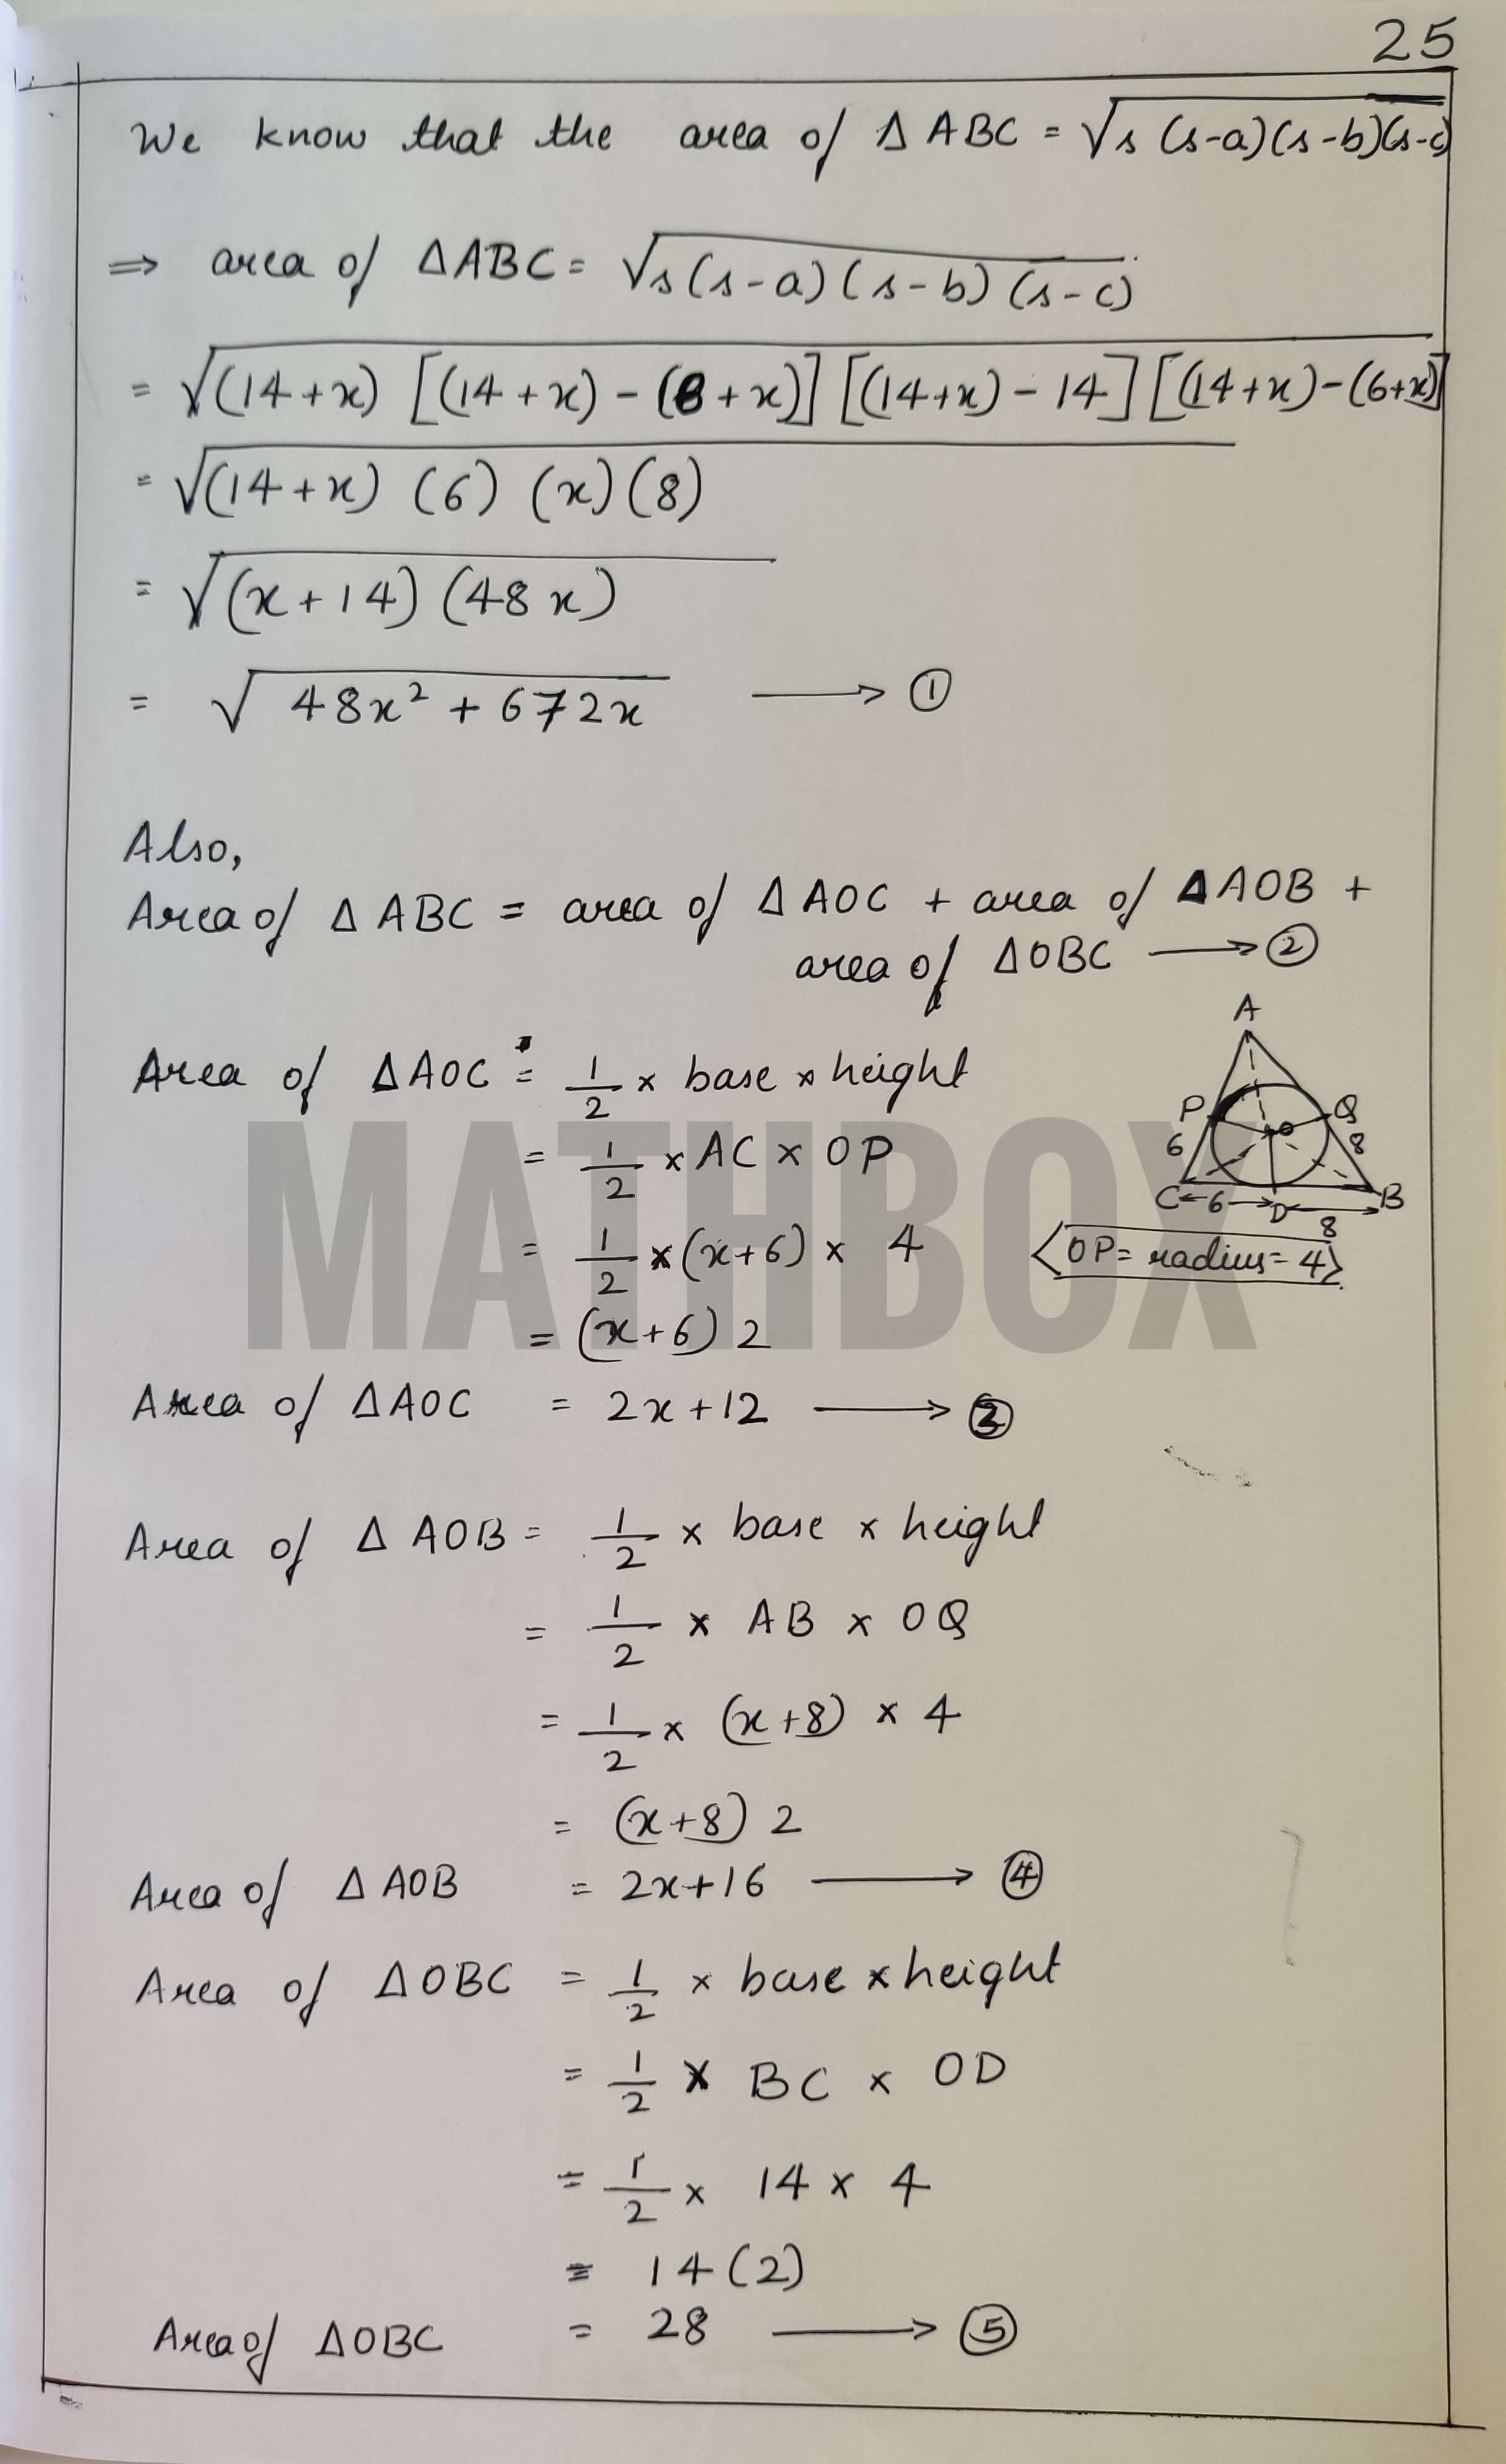 25
We know that the area of Δ ABC = √s (s-a)(s-b)(s-c)
⇒ area of ΔABC = √s(s-a)(s-b)(s-c)
= √(14+x) [(14+x)-(8+x)] [(14+x)-14] [(14+x)-(6+x)]
= √(14+x) (6) (x)(8)
= √(x+14) (48x)
= √48x² + 672x ⟶ ①
Also,
Area of Δ ABC = area of ΔAOC + area of ΔAOB +
area of ΔOBC ⟶ ②
Area of ΔAOC = 1/2 × base × height
= 1/2 × AC × OP
= 1/2 × (x+6) × 4
= (x+6) 2
Area of ΔAOC = 2x+12 ⟶ ③
A
P
Q
6
8
O
C
6
D
8
B
OP = radius = 4
MATHBOX
Area of Δ AOB = 1/2 × base × height
= 1/2 × AB × OQ
= 1/2 × (x+8) × 4
= (x+8) 2
Area of ΔAOB = 2x+16 ⟶ ④
Area of ΔOBC = 1/2 × base × height
= 1/2 × BC × OD
= 1/2 × 14 × 4
= 14(2)
Area of ΔOBC = 28 ⟶ ⑤